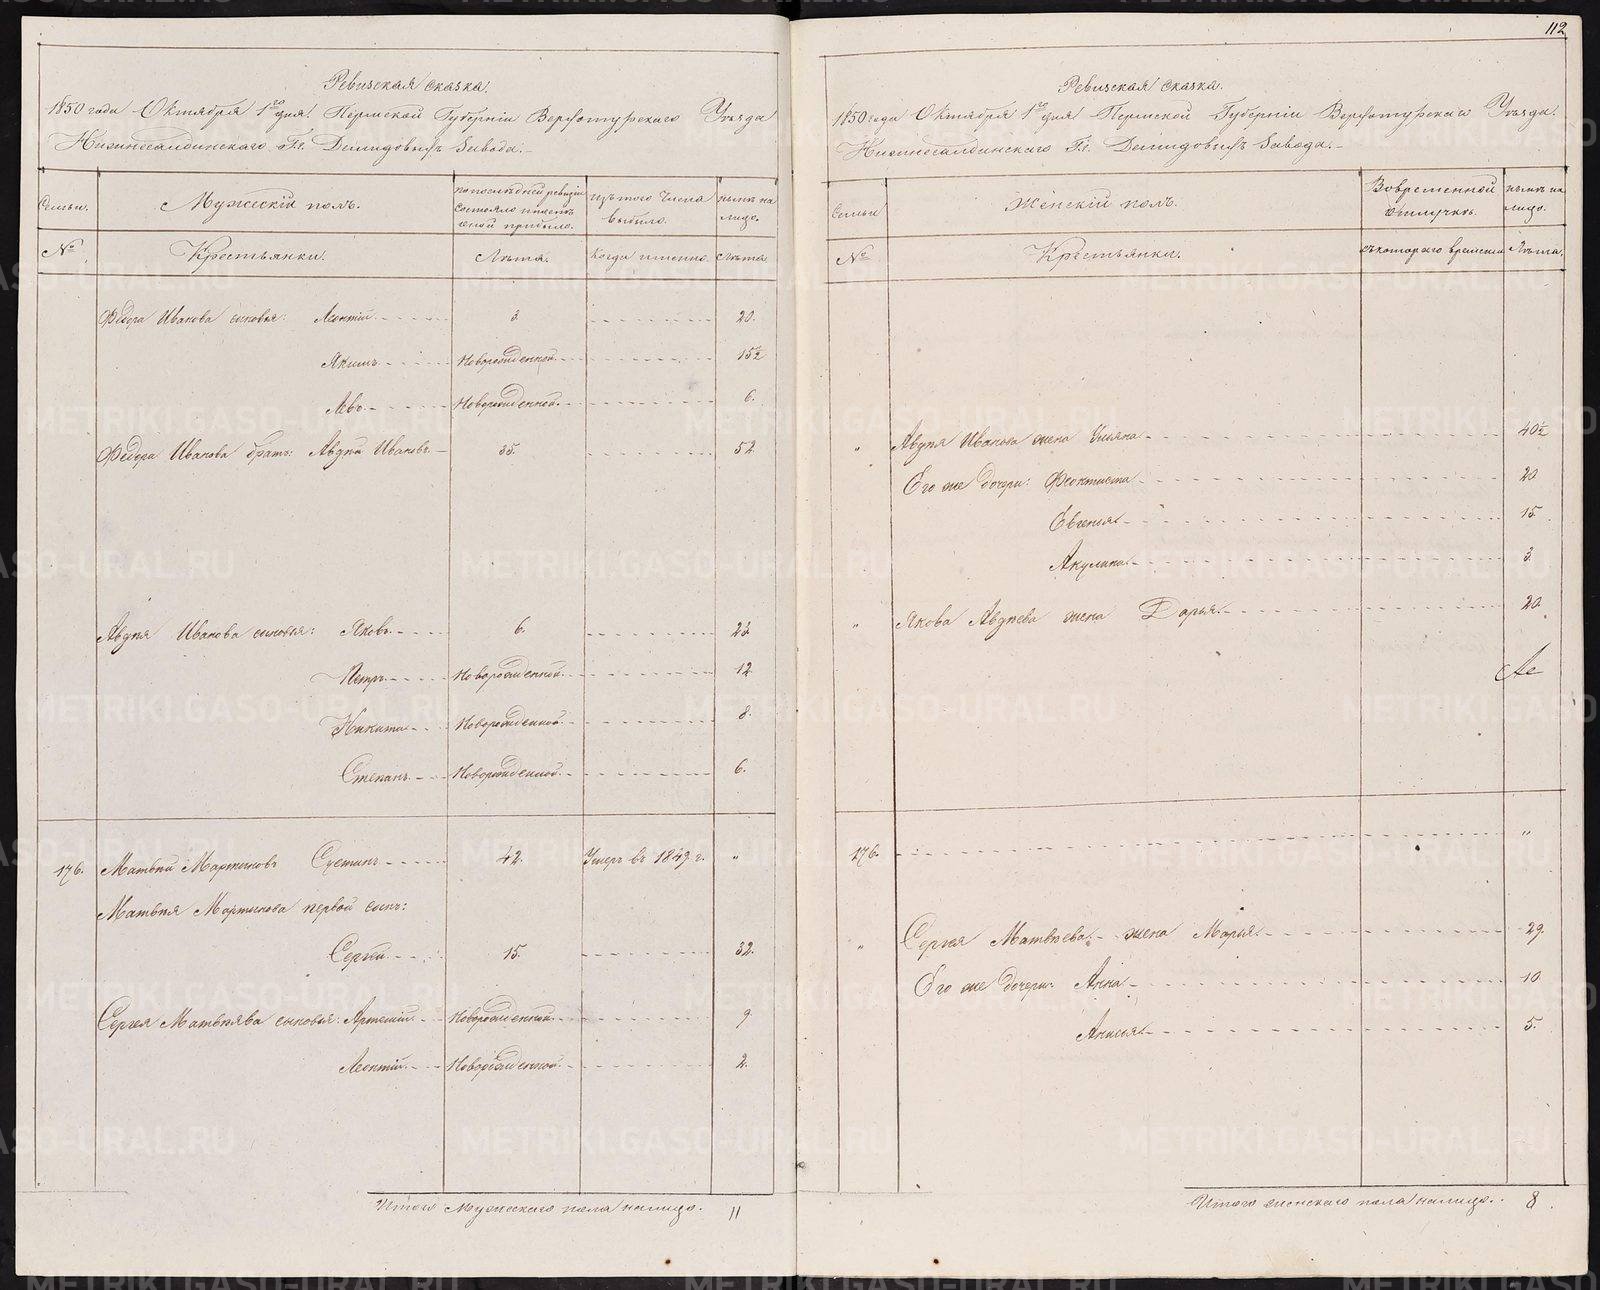 112
Ревизская сказка.
1850 года Октября 1го дня Пермской Губернiи Верхотурскаго Уѣзда
Нижнесалдинскаго Г.г. Демидовыхъ Завода.
Семьи.
Мужескiй полъ.
по последней ревизiи состояло и после оной прибыло.
изъ того числа выбыло.
нынѣ на лицо.
№
Крестьянки.
Лѣта.
Когда именно.
Лѣта
Федора Иванова сыновья: Леонтiй 3. 20.
Якимъ Новорожденной 15½
Левъ Новорожденной. 6.
Федора Иванова братъ: Авдѣй Ивановъ 35. 52
Авдѣя Иванова сыновья: Яковъ 6. 23
Петръ Новорожденной. 12
Никита Новорожденной. 8.
Степанъ Новорожденной. 6.
176. Матвѣй Мартыновъ 42. Умеръ въ 1849 г. "
Матвѣя Мартынова первой сынъ:
Сергѣй 15. 32.
Сергѣя Матвѣева сыновья: Артемiй Новорожденной 9
Леонтiй Новорожденной. 2.
Итого Мужескаго пола налицо. 11
Ревизская сказка.
1850 года Октября 1го дня Пермской Губернiи Верхотурскаго Уѣзда.
Нижнесалдинскаго Г.г. Демидовыхъ Завода.
Семьи
Женскiй полъ.
Во временной отлучкѣ.
нынѣ на лицо.
№
Крестьянки.
съ котораго времени
Лѣта.
" Авдѣя Иванова жена Ульяна 40½
Его же дочери: Феоктиста 20
Евгенья 15.
Акулина 3.
" Якова Авдѣева жена Дарья 20.
176. "
" Сергѣя Матвѣева жена Марья 29.
Его же дочери: Анна 10
Анисья 5.
Итого женскаго пола налицо. 8.